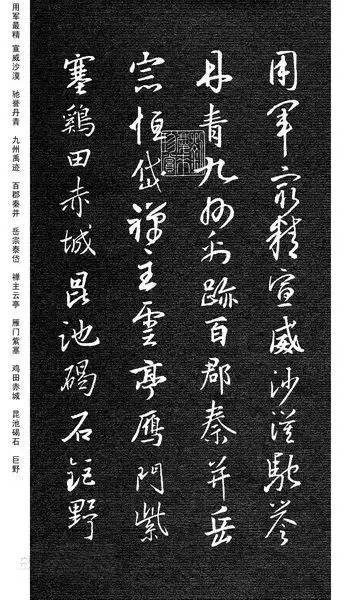 用軍最精宣威沙漠馳誉
丹青九州禹跡百郡秦并岳
宗恒岱禪主雲亭雁門紫
塞鷄田赤城昆池碣石鉅野
用军最精 宣威沙漠 驰誉丹青 九州禹迹 百郡秦并 岳宗泰岱 禅主云亭 雁门紫塞 鸡田赤城 昆池碣石 巨野